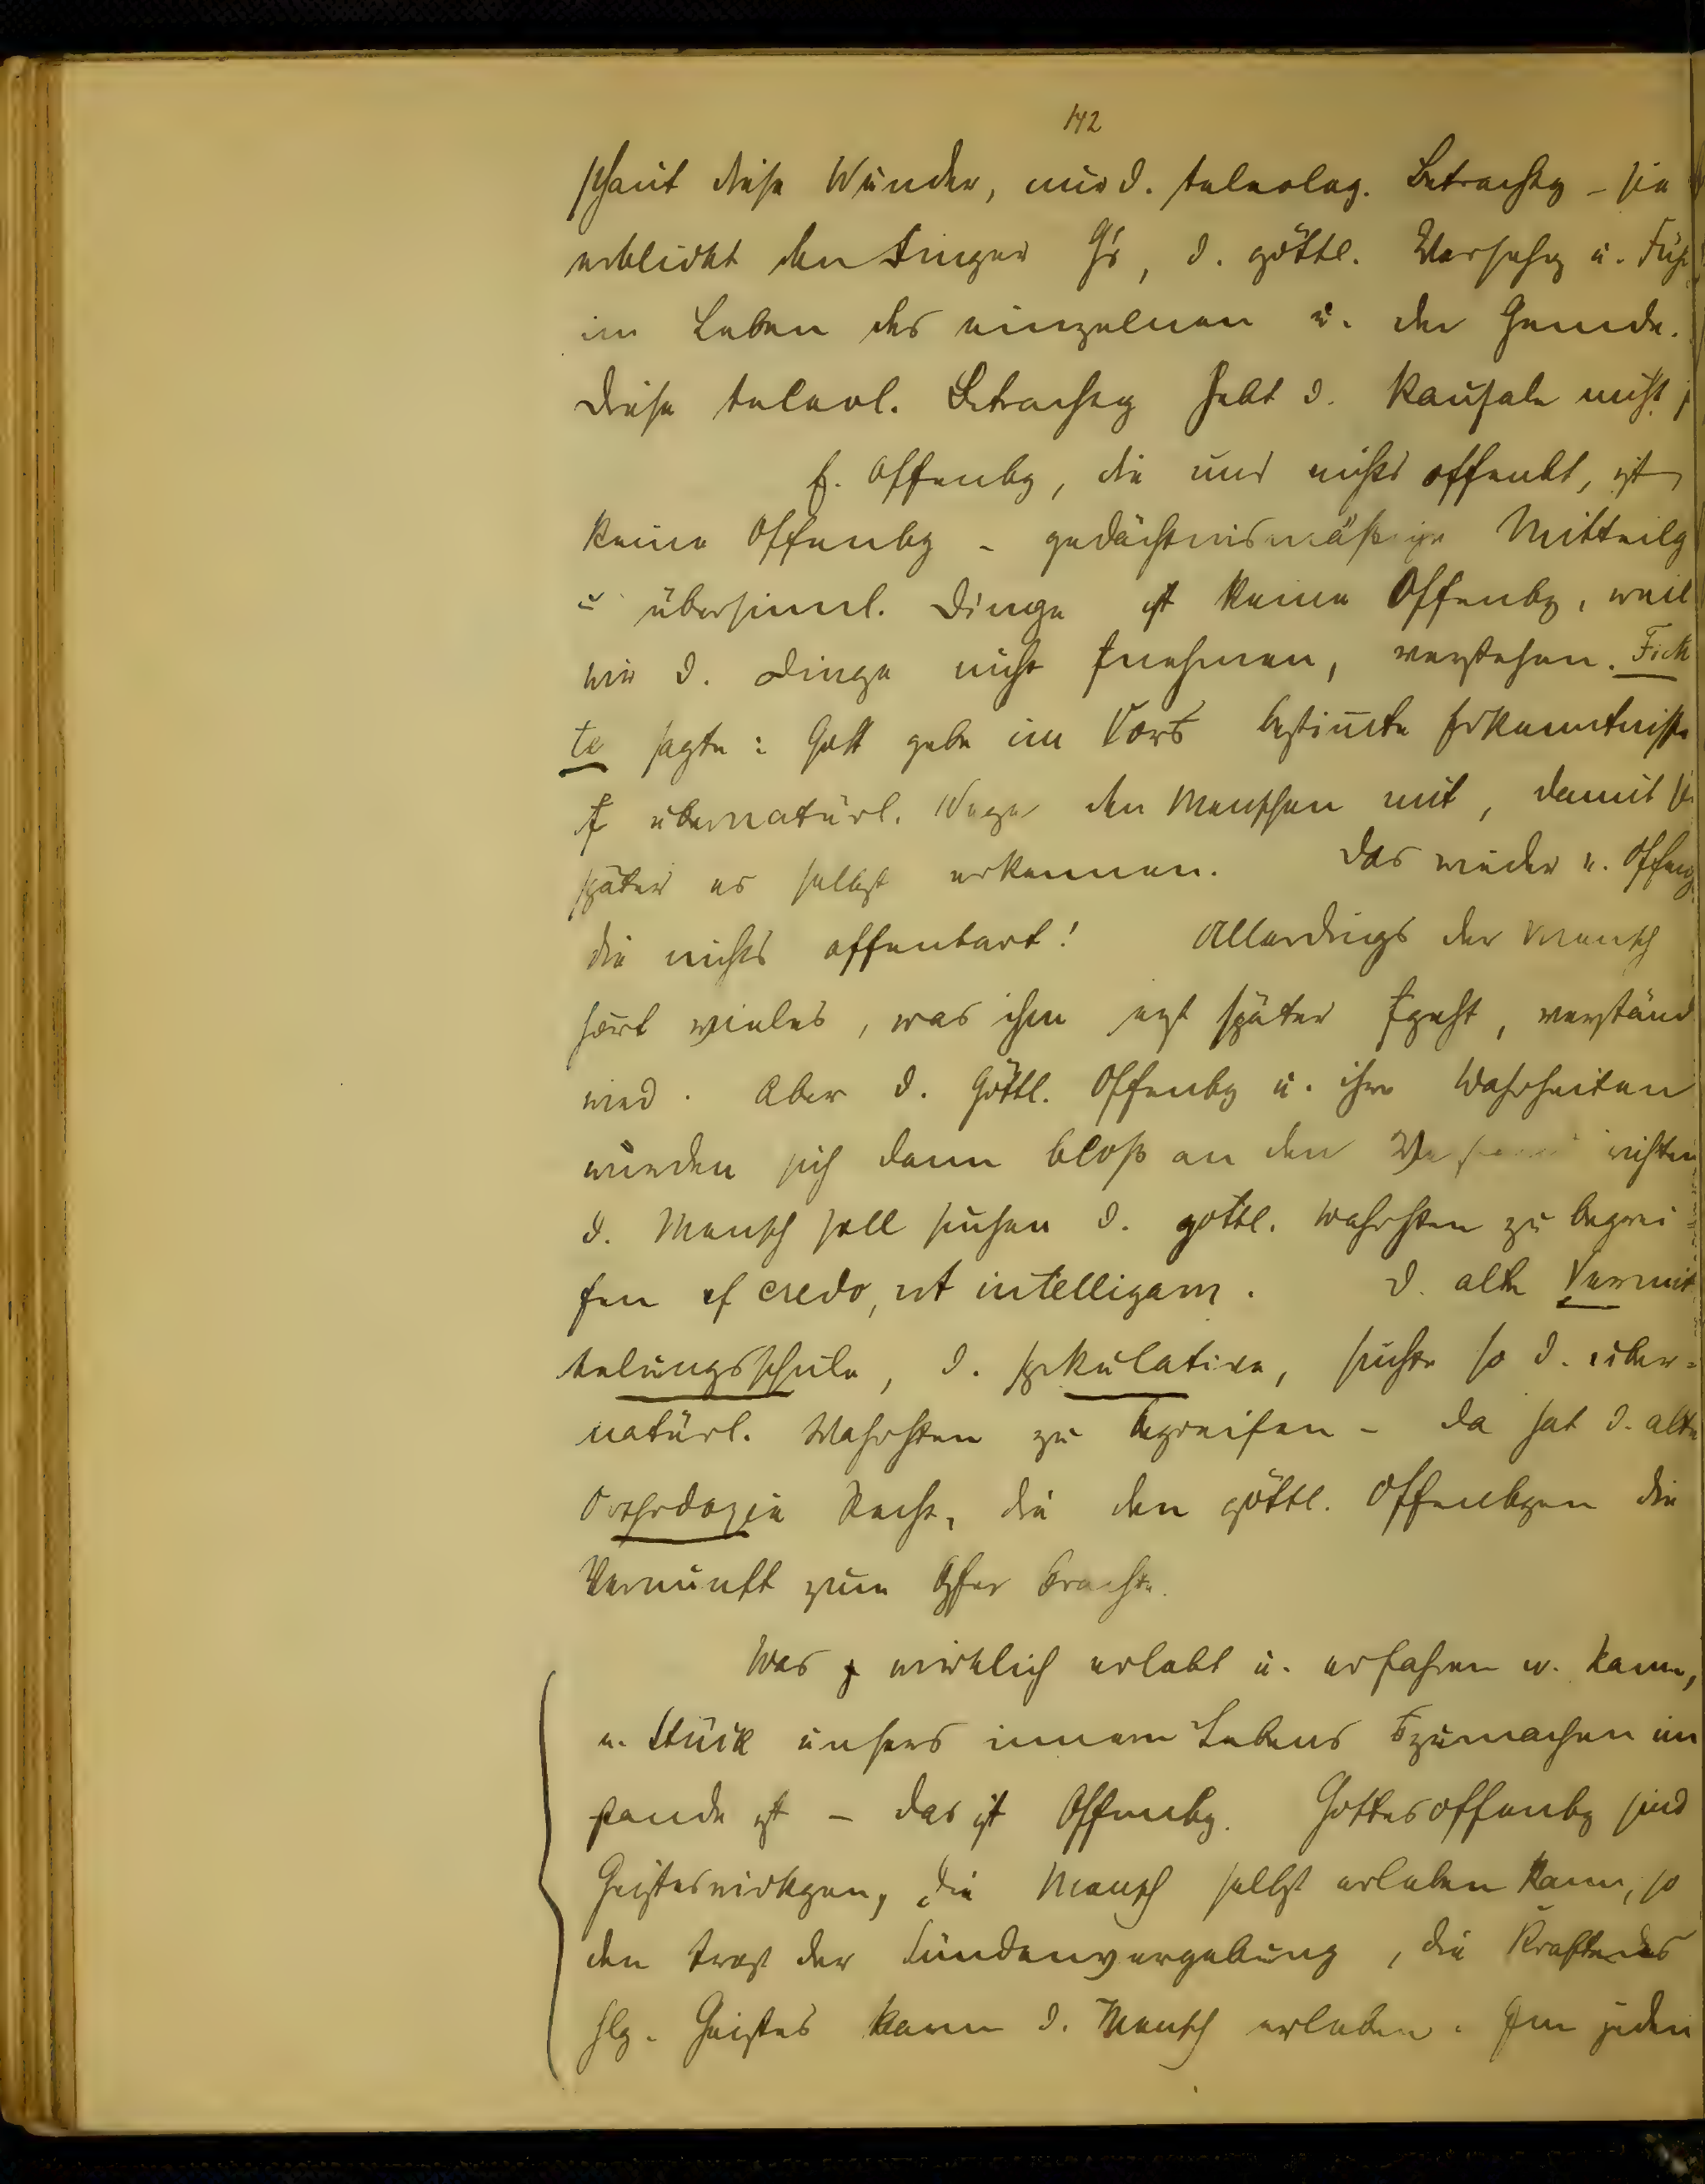 142
schaut diese Wunder, nur d. teleolog. Betrachtg – sie
erblickt den Finger G's, d. göttl. Vorsehg u. Füh
im Leben des einzelnen u. der Gemde.
Diese teleol. Betrachtg hebt d. kausale nicht
E. Offenbg, die uns nichts offenbt, ist
keine Offenbg – gedächtnismäßige Mitteilg
übersinnl. Dinge ist keine Offenbg, weil
wir d. Dinge nicht nehmen, verstehen. Fich
te sagte: Gott gebe im Vors bestimte Erkenntnisse
übernatürl. Wege den Menschen mit, damit sie
später es selbst erkennen. Das wieder e. Offenbg
die nichts offenbart! Allerdings der Mensch
hört vieles, was ihm erst später geht, verständ
wird. Aber d. Göttl. Offenbg u. ihre Wahrheiten
würden sich dann bloß an den Verstand richten
d. Mensch soll suchen d. göttl. Wahrhten zu begrei
fen cf credo, ut intelligam. D. alte Vermit
telungsschule, d. spekulative, suchte so d. über-
natürl. Wahrhten zu begreifen – da hat d. alte
Orthodoxie Recht, die den göttl. Offenbgen die
Vernunft zum Opfer brachte.
Was wirklich erlebt u. erfahren w. kann,
e. Stück unsers innern Lebens zumachen im
stande ist – das ist Offenbg. Gottesoffenbg sind
Geisteswirkgen, die Mensch selbst erleben kann, so
den Trost der Sündenvergebung, die Kräfte des
hlg. Geistes kann d. Mensch erleben. Im jeden